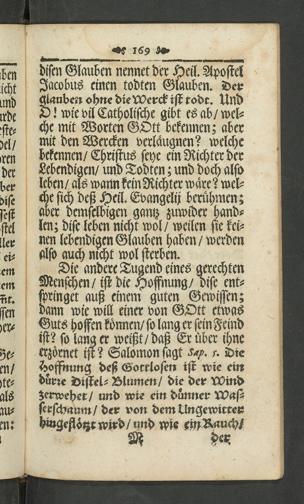 169
disen Glauben nennet der Heil. Apostel
Jacobus einen todten Glauben. Der
glauben ohne die Werck ist todt. Und
O! wie vil Catholische gibt es ab/ wel-
che mit Worten GOtt bekennen; aber
mit den Wercken verläugnen? welche
bekennen/ Christus seye ein Richter der
Lebendigen/ und Todten; und doch also
leben/ als wann kein Richter wäre? wel-
che sich deß Heil. Evangelij berühmen;
aber demselbigen gantz zuwider hand-
len; dise leben nicht wol/ weilen sie kei-
nen lebendigen Glauben haben/ werden
also auch nicht wol sterben.
Die andere Tugend eines gerechten
Menschen/ ist die Hoffnung/ dise ent-
springet auß einem guten Gewissen;
dann wie will einer von GOtt etwas
Guts hoffen können/ so lang er sein Feind
ist? so lang er weißt/ daß Er über ihne
erzörnet ist? Salomon sagt Sap. 5. Die
Hoffnung deß Gottlosen ist wie ein
dürre Distel-Blumen/ die der Wind
zerwehet/ und wie ein dünner Was-
serschaum/ der von dem Ungewitter
hingeflötzt wird/ und wie ein Rauch/
M der